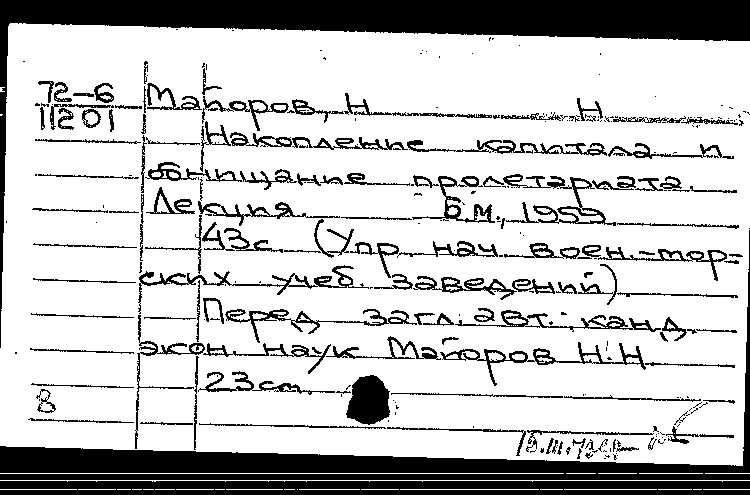 72-6
11201
Майоров, Н Н
Накопление капитала и
обнищание пролетариата.
Лекция. Б.м., 1959.
43с. (Упр. нач. воен.-мор-
ских учеб. заведений).
Перед загл. авт.: канд.
экон. наук Майоров Н.Н.
23см.
8